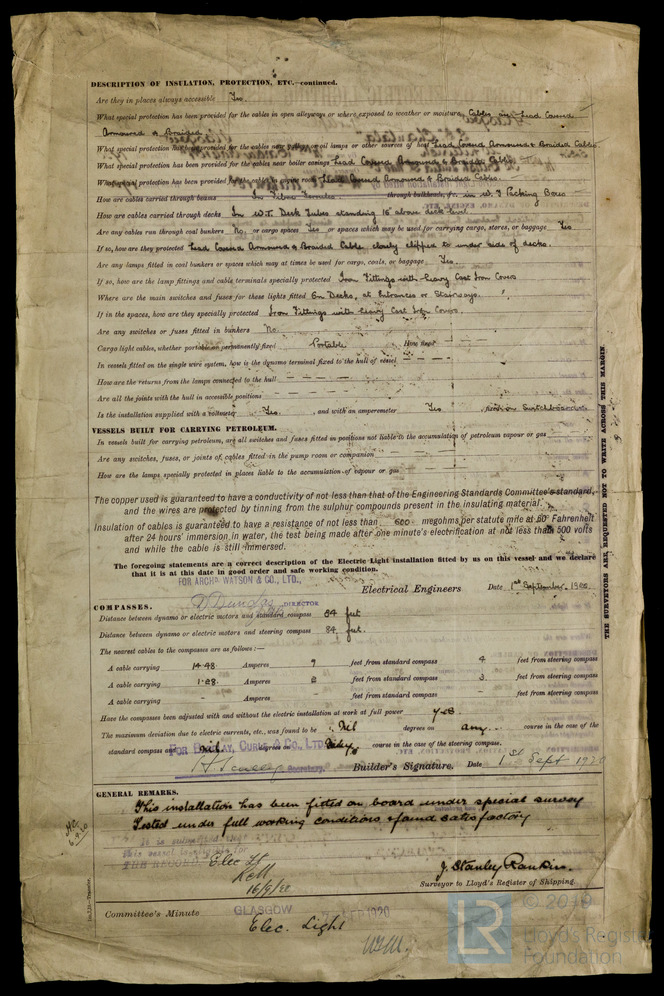 DESCRIPTION OF INSULATION, PROTECTION, ETC.—continued.
Are they in places always accessible Yes.
What special protection has been provided for the cables in open alleyways or where exposed to weather or moisture Cables in Lead Covered
Armoured & Braided
What special protection has been provided for the cables near galleys or oil lamps or other sources of heat Lead Covered Armoured & Braided Cable.
What special protection has been provided for the cables near boiler casings Lead Covered Armoured & Braided Cable
What special protection has been provided for the cables in engine room Lead Covered Armoured & Braided Cables.
How are cables carried through beams In Fibre Ferrules through bulkheads, &c. in W.T. Packing Boxes
How are cables carried through decks In W.T. Deck Tubes standing 18" above deck level.
Are any cables run through coal bunkers No, or cargo spaces Yes or spaces which may be used for carrying cargo, stores, or baggage Yes.
If so, how are they protected Lead Covered Armoured & Braided Cable closely clipped to under side of decks.
Are any lamps fitted in coal bunkers or spaces which may at times be used for cargo, coals, or baggage Yes.
If so, how are the lamp fittings and cable terminals specially protected Iron Fittings with heavy Cast Iron Covers
Where are the main switches and fuses for these lights fitted On Decks, at Entrances or Stairways.
If in the spaces, how are they specially protected Iron Fittings with heavy Cast Iron Covers
Are any switches or fuses fitted in bunkers No.
Cargo light cables, whether portable or permanently fixed Portable How fixed — — —
In vessels fitted on the single wire system, how is the dynamo terminal fixed to the hull of vessel — — — —
How are the returns from the lamps connected to the hull — — — —
Are all the joints with the hull in accessible positions — — — —
Is the installation supplied with a voltmeter Yes, and with an amperemeter Yes, fixed on Switchboard
VESSELS BUILT FOR CARRYING PETROLEUM.
In vessels built for carrying petroleum, are all switches and fuses fitted in positions not liable to the accumulation of petroleum vapour or gas
Are any switches, fuses, or joints of cables fitted in the pump room or companion
How are the lamps specially protected in places liable to the accumulation of vapour or gas
The copper used is guaranteed to have a conductivity of not less than that of the Engineering Standards Committee's standard,
and the wires are protected by tinning from the sulphur compounds present in the insulating material.
Insulation of cables is guaranteed to have a resistance of not less than 600 megohms per statute mile at 60° Fahrenheit
after 24 hours' immersion in water, the test being made after one minute's electrification at not less than 500 volts
and while the cable is still immersed.
The foregoing statements are a correct description of the Electric Light installation fitted by us on this vessel and we declare
that it is at this date in good order and safe working condition.
FOR ARCHD. WATSON & CO., LTD.,
Electrical Engineers Date 1st September 1920.
D Dundas DIRECTOR
COMPASSES.
Distance between dynamo or electric motors and standard compass 84 feet
Distance between dynamo or electric motors and steering compass 84 feet.
The nearest cables to the compasses are as follows:—
A cable carrying 14.48 Amperes 9 feet from standard compass 4 feet from steering compass
A cable carrying 1.28 Amperes 2 feet from standard compass 3 feet from steering compass
A cable carrying - Amperes - feet from standard compass - feet from steering compass
Have the compasses been adjusted with and without the electric installation at work at full power Yes
The maximum deviation due to electric currents, etc., was found to be Nil degrees on any course in the case of the
standard compass and Nil degrees on any course in the case of the steering compass.
FOR BARCLAY, CURLE & CO., LTD.
Secretary. Builder's Signature. Date 1st Sept 1920
GENERAL REMARKS.
This installation has been fitted on board under special survey
Tested under full working conditions & found satisfactory
It is submitted that
this vessel is eligible for
THE RECORD. Elec Lt
16/9/20
J. Stanley Rankin.
Surveyor to Lloyd's Register of Shipping.
Committee's Minute GLASGOW SEP 1920
Elec. Light
THE SURVEYORS ARE REQUESTED NOT TO WRITE ACROSS THIS MARGIN.
6.9.20
LR
© 2019
Lloyd's Register
Foundation